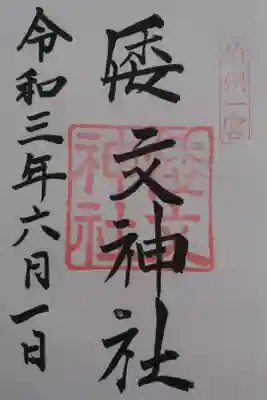 伯州一宮
倭文神社
倭文神社
令和三年六月一日